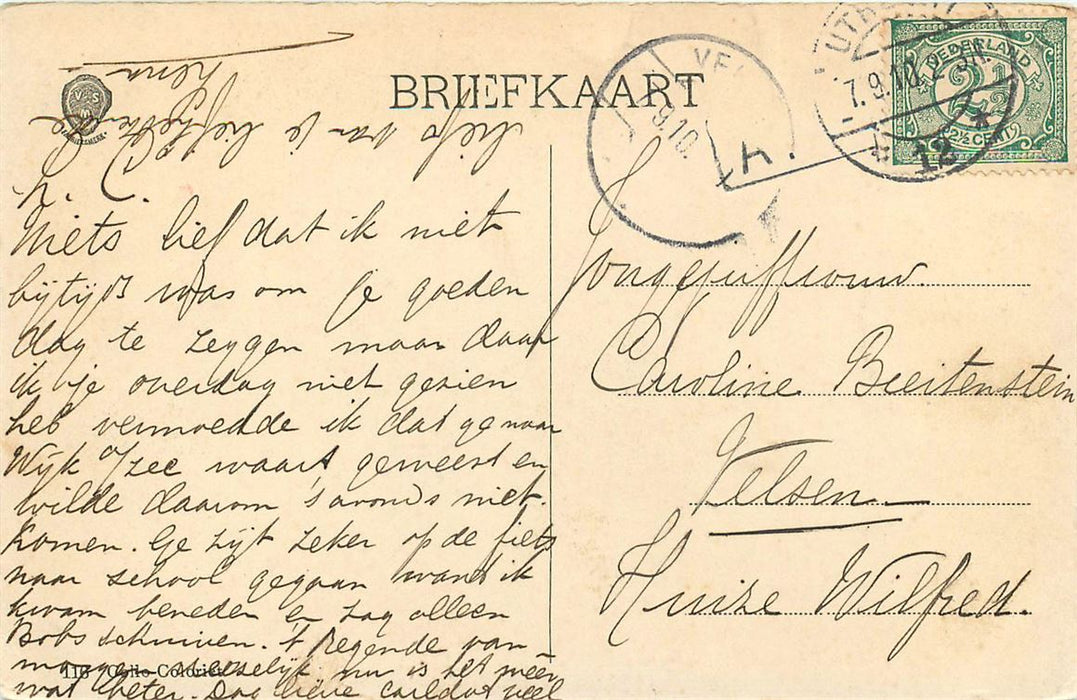 BRIEFKAART
UTRECHT
7.9.10
12
VEL
9.10
A.
NEDERLAND
2½
2½ CENT
L. C.
Niets lief dat ik niet
bijtijds was om je goeden
dag te zeggen maar daar
ik je overdag niet gezien
heb vermoedde ik dat ge naar
Wijk a/zee waart geweest en
wilde daarom 's avonds niet
komen. Ge zijt zeker op de fiets
naar school gegaan want ik
kwam beneden en zag alleen
Bobs schuiven. 't Regende van
morgen vreeselijk nu is het weer
wat beter. Dag lieve Carla veel
liefs van je liefhebbende
Lena
Jongejuffrouw
Caroline Breitenstein
Velsen
Huize Wilfred.
116